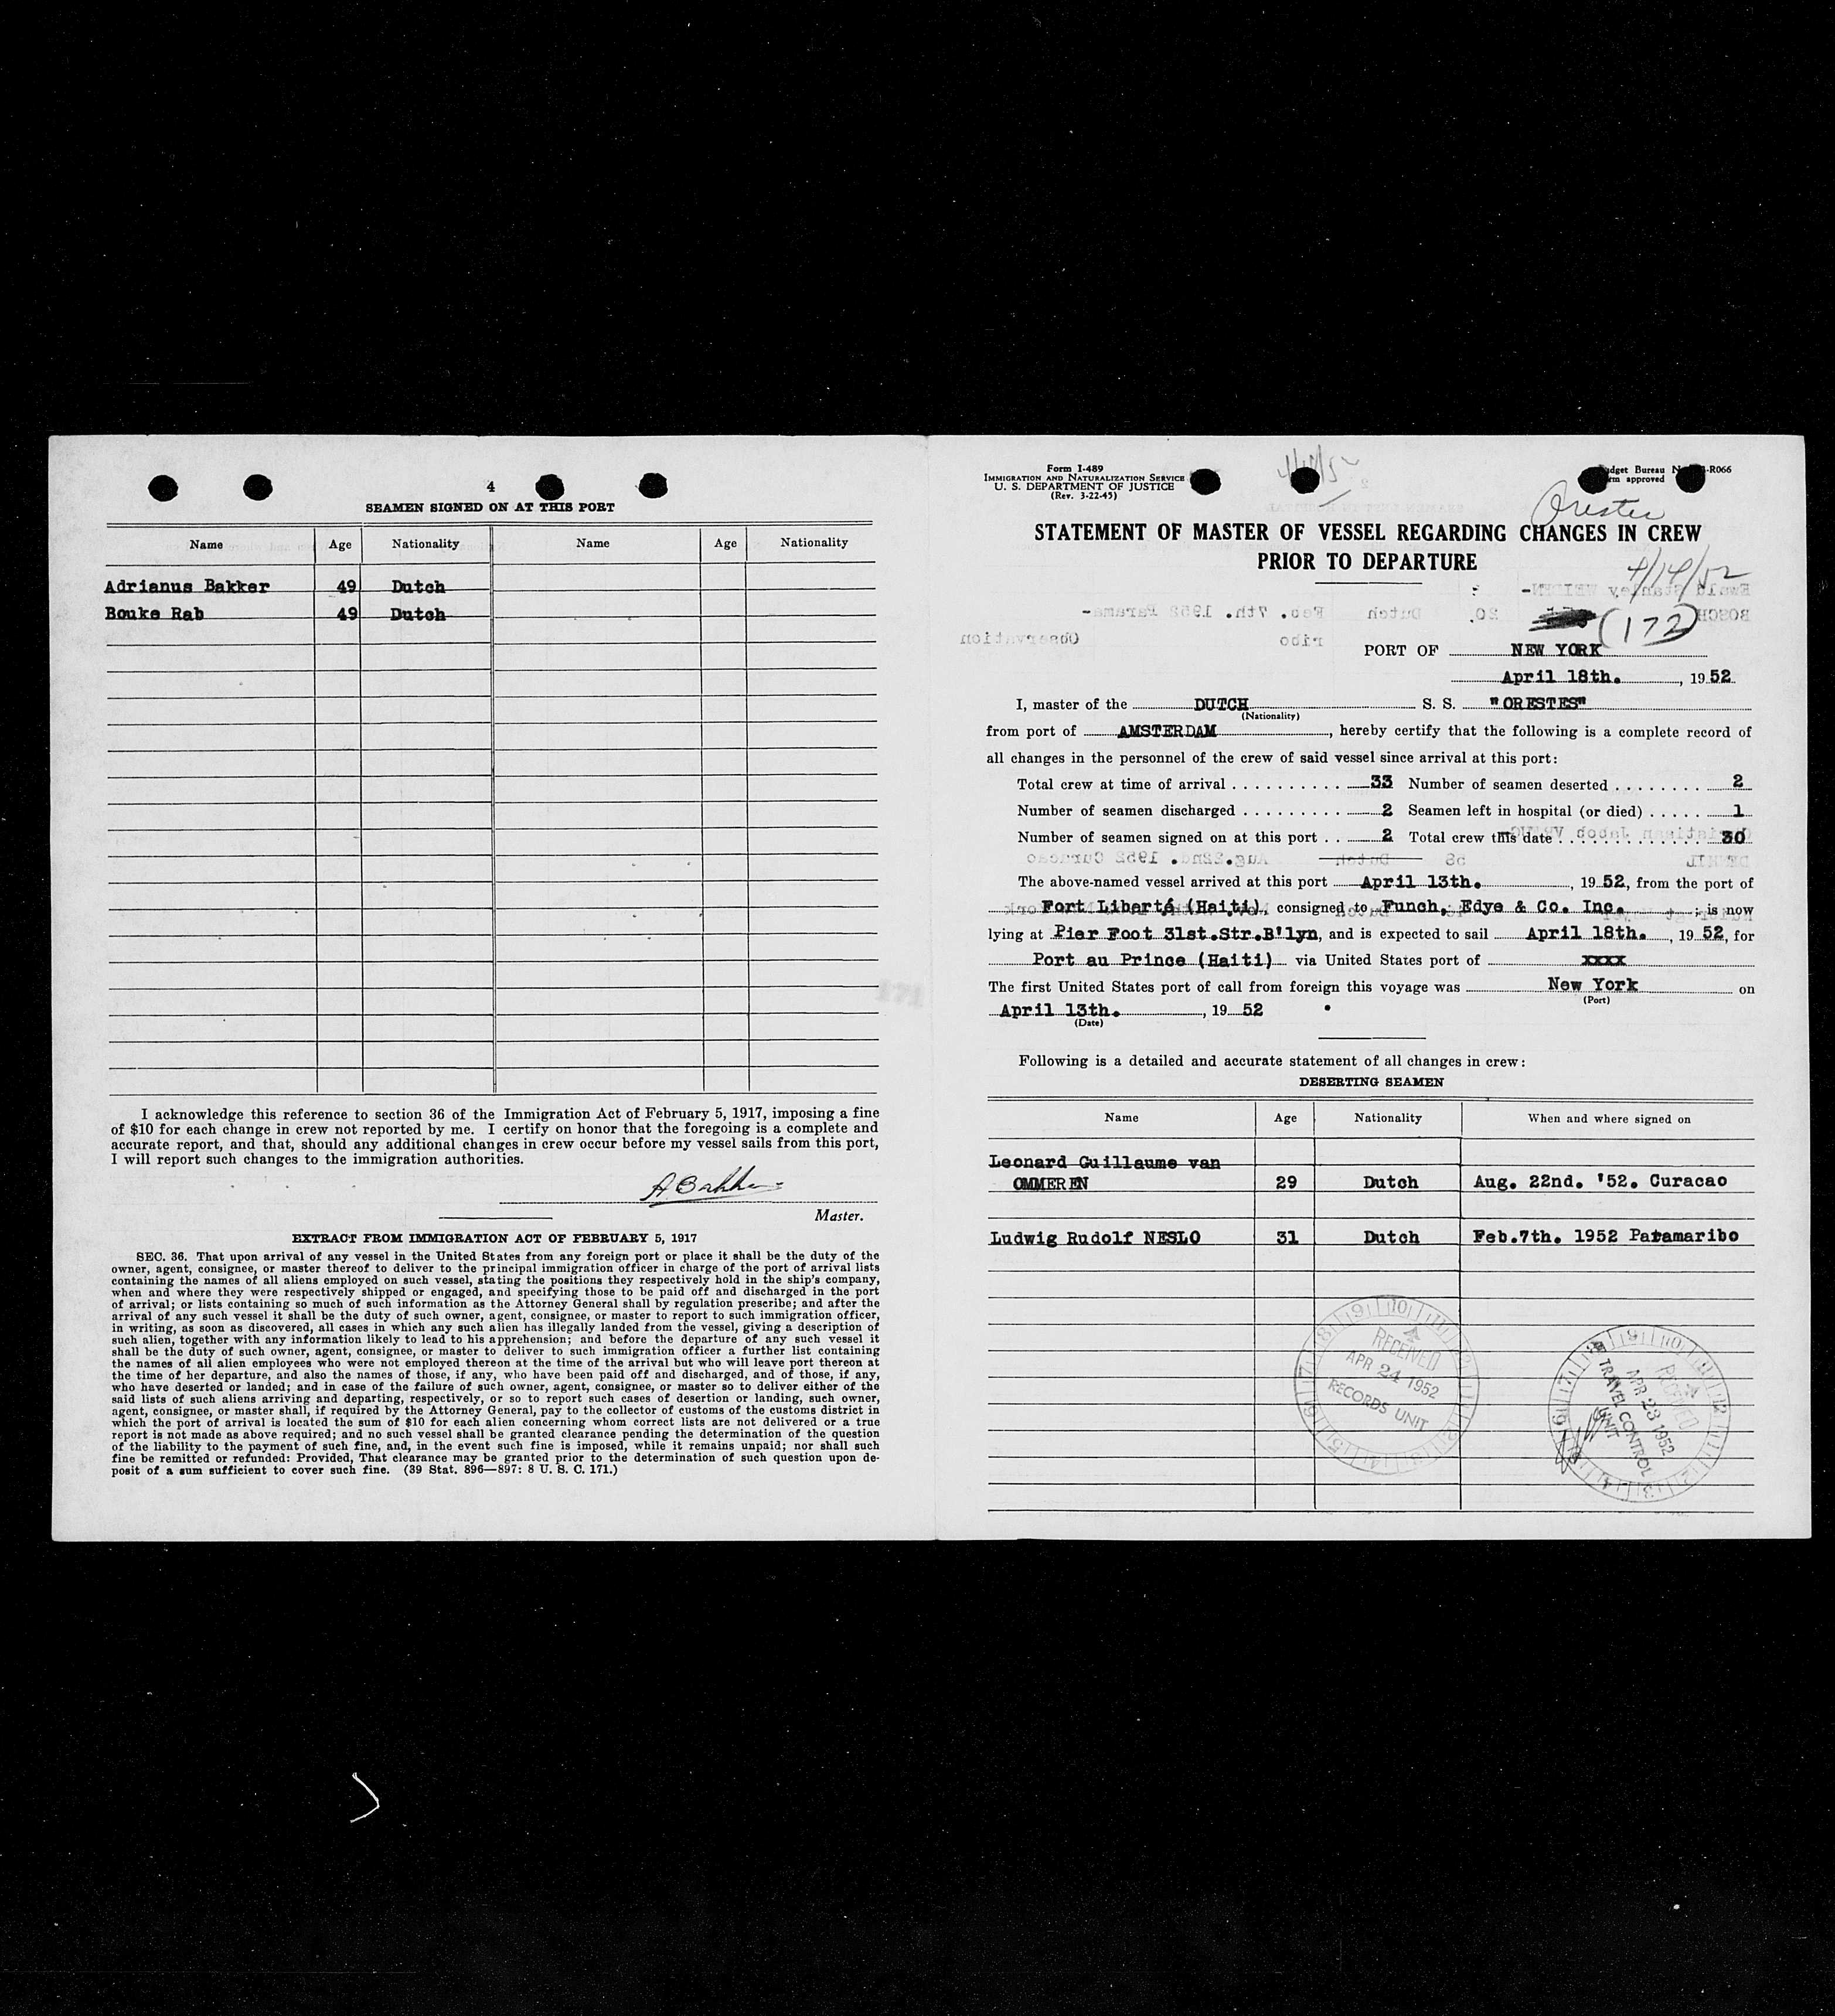 4
SEAMEN SIGNED ON AT THIS PORT
Name Age Nationality Name Age Nationality
Adrianus Bakker 49 Dutch
Bouke Rab 49 Dutch
I acknowledge this reference to section 36 of the Immigration Act of February 5, 1917, imposing a fine
of $10 for each change in crew not reported by me. I certify on honor that the foregoing is a complete and
accurate report, and that, should any additional changes in crew occur before my vessel sails from this port,
I will report such changes to the immigration authorities.
A Bakker
Master.
EXTRACT FROM IMMIGRATION ACT OF FEBRUARY 5, 1917
SEC. 36. That upon arrival of any vessel in the United States from any foreign port or place it shall be the duty of the
owner, agent, consignee, or master thereof to deliver to the principal immigration officer in charge of the port of arrival lists
containing the names of all aliens employed on such vessel, stating the positions they respectively hold in the ship's company,
when and where they were respectively shipped or engaged, and specifying those to be paid off and discharged in the port
of arrival; or lists containing so much of such information as the Attorney General shall by regulation prescribe; and after the
arrival of any such vessel it shall be the duty of such owner, agent, consignee, or master to report to such immigration officer,
in writing, as soon as discovered, all cases in which any such alien has illegally landed from the vessel, giving a description of
such alien, together with any information likely to lead to his apprehension; and before the departure of any such vessel it
shall be the duty of such owner, agent, consignee, or master to deliver to such immigration officer a further list containing
the names of all alien employees who were not employed thereon at the time of the arrival but who will leave port thereon at
the time of her departure, and also the names of those, if any, who have been paid off and discharged, and of those, if any,
who have deserted or landed; and in case of the failure of such owner, agent, consignee, or master so to deliver either of the
said lists of such aliens arriving and departing, respectively, or so to report such cases of desertion or landing, such owner,
agent, consignee, or master shall, if required by the Attorney General, pay to the collector of customs of the customs district in
which the port of arrival is located the sum of $10 for each alien concerning whom correct lists are not delivered or a true
report is not made as above required; and no such vessel shall be granted clearance pending the determination of the question
of the liability to the payment of such fine, and, in the event such fine is imposed, while it remains unpaid; nor shall such
fine be remitted or refunded: Provided, That clearance may be granted prior to the determination of such question upon de-
posit of a sum sufficient to cover such fine. (39 Stat. 896—897: 8 U. S. C. 171.)
Form I-489
IMMIGRATION AND NATURALIZATION SERVICE
U. S. DEPARTMENT OF JUSTICE
(Rev. 3-22-45)
Budget Bureau -R066
approved
Orestes
STATEMENT OF MASTER OF VESSEL REGARDING CHANGES IN CREW
PRIOR TO DEPARTURE
4/14/52
(172)
PORT OF NEW YORK
April 18th., 1952
I, master of the DUTCH S. S. "ORESTES"
(Nationality)
from port of AMSTERDAM, hereby certify that the following is a complete record of
all changes in the personnel of the crew of said vessel since arrival at this port:
Total crew at time of arrival . . . . . . . . . . 33 Number of seamen deserted . . . . . . . . 2
Number of seamen discharged . . . . . . . . . 2 Seamen left in hospital (or died) . . . . . 1
Number of seamen signed on at this port . . 2 Total crew this date . . . . . . . . . . . . . . 30
The above-named vessel arrived at this port April 13th., 1952, from the port of
Fort Liberté (Haiti), consigned to Funch, Edye & Co. Inc. ; is now
lying at Pier Foot 31st.Str.B'lyn, and is expected to sail April 18th., 1952, for
Port au Prince (Haiti) via United States port of xxxx
The first United States port of call from foreign this voyage was New York on
(Port)
April 13th., 1952
(Date)
Following is a detailed and accurate statement of all changes in crew:
DESERTING SEAMEN
Name Age Nationality When and where signed on
Leonard Guillaume van
OMMEREN 29 Dutch Aug. 22nd. '52. Curacao
Ludwig Rudolf NESLO 31 Dutch Feb.7th. 1952 Paramaribo
RECEIVED
APR 24 1952
RECORDS UNIT
RECEIVED
APR 23 1952
TRAVEL CONTROL
UNIT